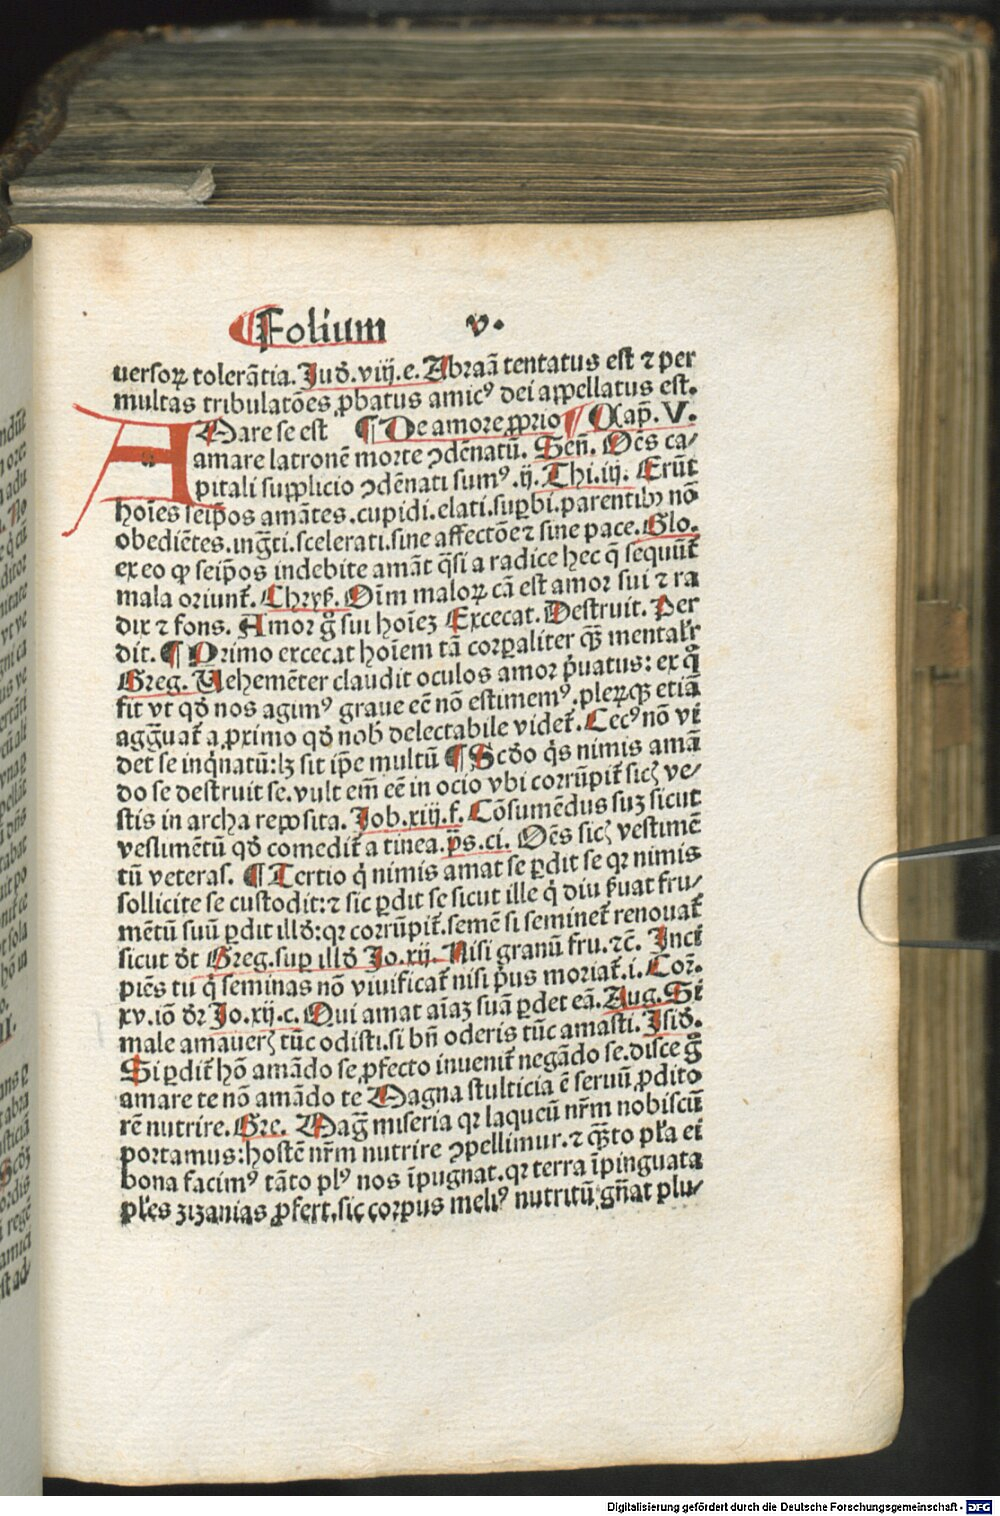 ¶ Folium v.
uersoꝝ tolerãtia. Iud̉.viij.e. Abraã tentatus est ⁊ per
multas tribulatões ꝓbatus amicꝰ dei appellatus est.
AMare se est ¶ De amore ꝓprio ¶ Cap̃. V.
amare latronẽ morte ꝯdẽnatũ. Señ. Oẽs ca⸗
pitali supplicio ꝯdẽnati sumꝰ .ij. Thi.iij. Erũt
hoĩes seip̃os amãtes.cupidi.elati.suꝑbi.parentibꝫ nõ
obediẽtes.ingr̃ti.scelerati.sine affectõe ⁊ sine pace. Glo.
ex eo ꝙ seip̃os indebite amãt q̃si a radice hec q̃ sequũt̃
mala oriunt̃. Chryß. Oĩm maloꝝ cã est amor sui ⁊ ra
dix ⁊ fons. Amor g̊ sui hoĩeꝫ Excecat. Destruit. Per
dit. ¶ Primo excecat hoĩem tã corꝑaliter qꝫ̃ mentalr̃
Greg. Vehemẽter claudit oculos amor p̃uatus: ex q̊
fit vt qd̉ nos agimꝰ graue eẽ nõ estimemꝰ.pleꝝqꝫ etiã
agg̃uat̃ a ꝓximo qd̉ nob̃ delectabile videt̃. Cecꝰ nõ vi
det se inq̃natũ: lꝫ sit ip̃e multũ ¶ Scd̉o q̇s nimis amã
do se destruit se.vult em̃ eẽ in ocio vbi corrũpit̃ sicꝫ ve⸗
stis in archa reposita. Iob.xiij.f. Cõsumẽdus suꝫ sicut
vestimẽtũ qd̉ comedit̃ a tinea.p̃s.ci. Oẽs sicꝫ vestimẽ
tũ veteras. ¶ Tertio q̇ nimis amat se ꝑdit se qꝛ nimis
sollicite se custodit: ⁊ sic ꝑdit se sicut ille q̇ diu ẜuat fru⸗
mẽtũ suũ ꝑdit illd̉: qꝛ corrũpit̃.semẽ si seminet̃ renouat̃
sicut d̉t Greg.suꝑ illd̉ Io.xij. Nisi granũ fru. ⁊c̃. Inci
piẽs tu q̇ seminas nõ viuificat̃ nisi p̃us moriat̃.i. Coꝛ̃.
xv.iõ d̉ꝛ Io.xij.c. Qui amat aĩaꝫ suã ꝑdet eã. Aug. Si
male amauerꝭ tũc odisti.si bñ oderis tũc amasti. Isid̉.
Si ꝑdit̃ hõ amãdo se ꝓfecto inuenit̃ negãdo se.disce g̊
amare te nõ amãdo te Magna stulticia ẽ seruũ ꝓdito
rẽ nutrire. Gre. Mag̃ miseria qꝛ laqueũ nr̃m nobiscũ
portamus: hostẽ nr̃m nutrire ꝯpellimur. ⁊ qꝫ̃to pl̃a ei
bona facimꝰ tãto plꝰ nos ĩpugnat.qꝛ terra ĩpinguata
pl̃es zizanias ꝓfert.sic corpus meliꝰ nutritũ gñat plu⸗
Digitalisierung gefördert durch die Deutsche Forschungsgemeinschaft - DFG